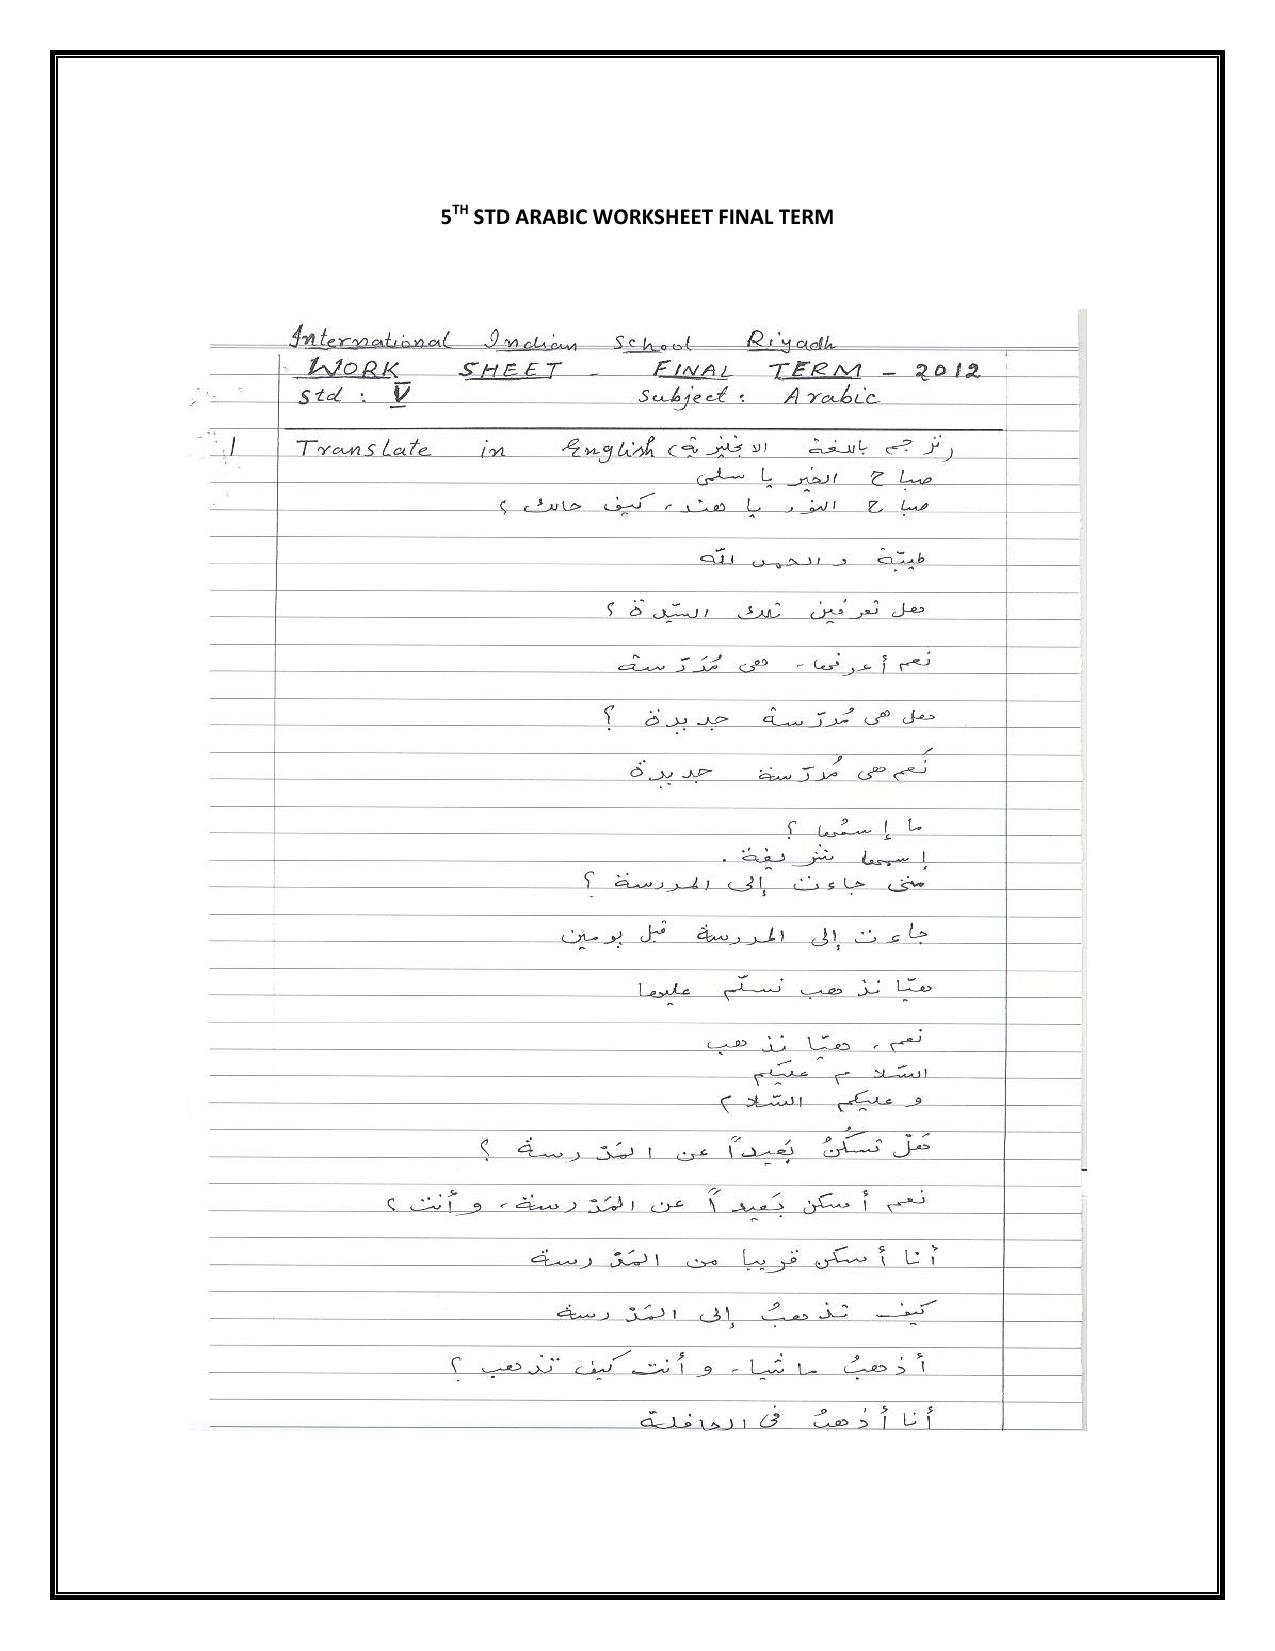 5TH STD ARABIC WORKSHEET FINAL TERM
International Indian School Riyadh
WORK SHEET - FINAL TERM - 2012
Std : V Subject : Arabic
1 Translate in English (ترجم باللغة الانجليزية)
صباح الخير يا سلمى
صباح النور يا هند، كيف حالك ؟
طيبّة و الحمد الله
هل تعرفين تلك السّيدة ؟
نعم أعرفها - هى مُدَرّسة
هل هى مُدرّسة جديدة ؟
نَعم هى مُدرّسة جديدة
ما إسمُها ؟
إسمها شريفة .
متى جاءت إلى المدرسة ؟
جاءت إلى المدرسة قبل يومين
هيّا نذهب نسلّم عليها
نعم، هيّا نذهب
السّلام عليكم
و عليكم السّلام
هَلْ تسكُنُ بَعِيداً عن المَدْرسة ؟
نعم أسكن بَعيداً عن المَدْرسة، و أنت ؟
أنا أسكن قريبا من المَدْرسة
كيف تذهبُ إلى المَدْرسة
أذهبُ ماشيا - و أنت كيف تذهب ؟
أنا أذهبُ فى الحافلة